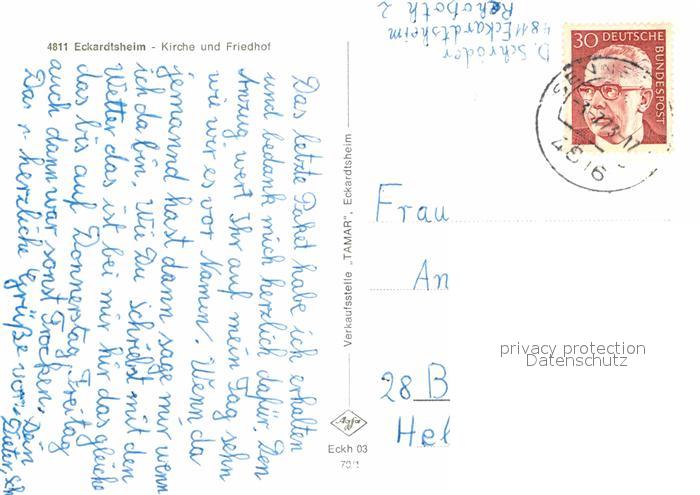 4811 Eckardtsheim - Kirche und Friedhof
Das letzte Paket habe ich erhalten
und bedank mich herzlich dafür. Den
Anzug wert Ihr auf mein Tag sehn
wie wir es vor Namen. Wenn da
jemannd hast dann sage mir wenn
ich da bin. Wie Du schribst mit den
Wetter das ist bei mir hir das gleiche
das bis auf Donnerstag, Freitag
auch dann war sonst Trocken.
Das n herzliche Grüße von Dein
Dieter, Sch
Verkaufsstelle „TAMAR", Eckardtsheim
Agfa
Eckh 03
70/1
D. Schröder
4811 Eckardtsheim
Rehoboth 2
30 DEUTSCHE BUNDESPOST
SENNE
4816
Frau
An
28 B
Hel
privacy protection
Datenschutz